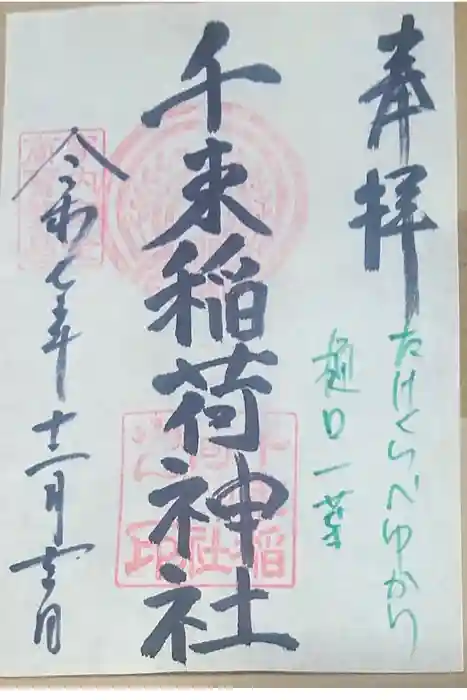 奉拝
たけくらべゆかり
樋口一葉
千束稲荷神社
令和七年十二月